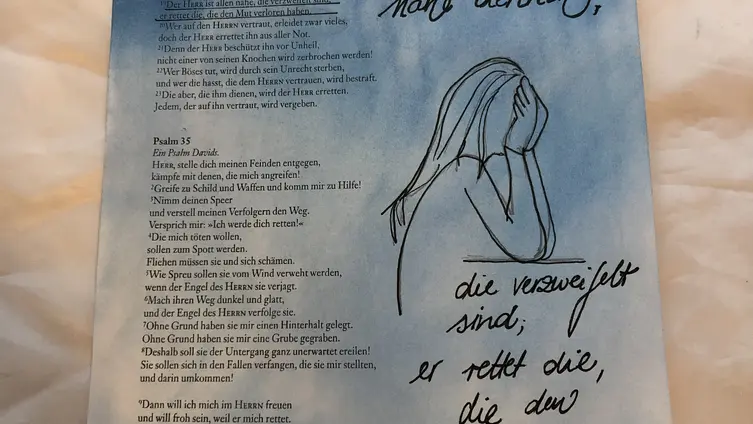 ¹⁹Der HERR ist allen nahe, die verzweifelt sind;
er rettet die, die den Mut verloren haben.
²⁰Wer auf den HERRN vertraut, erleidet zwar vieles,
doch der HERR errettet ihn aus aller Not.
²¹Denn der HERR beschützt ihn vor Unheil,
nicht einer von seinen Knochen wird zerbrochen werden!
²²Wer Böses tut, wird durch sein Unrecht sterben,
und wer die hasst, die dem HERRN vertrauen, wird bestraft.
²³Die aber, die ihm dienen, wird der HERR erretten.
Jedem, der auf ihn vertraut, wird vergeben.
Psalm 35
Ein Psalm Davids.
HERR, stelle dich meinen Feinden entgegen,
kämpfe mit denen, die mich angreifen!
²Greife zu Schild und Waffen und komm mir zu Hilfe!
³Nimm deinen Speer
und verstell meinen Verfolgern den Weg.
Versprich mir: »Ich werde dich retten!«
⁴Die mich töten wollen,
sollen zum Spott werden.
Fliehen müssen sie und sich schämen.
⁵Wie Spreu sollen sie vom Wind verweht werden,
wenn der Engel des HERRN sie verjagt.
⁶Mach ihren Weg dunkel und glatt,
und der Engel des HERRN verfolge sie.
⁷Ohne Grund haben sie mir einen Hinterhalt gelegt.
Ohne Grund haben sie mir eine Grube gegraben.
⁸Deshalb soll sie der Untergang ganz unerwartet ereilen!
Sie sollen sich in den Fallen verfangen, die sie mir stellten,
und darin umkommen!
⁹Dann will ich mich im HERRN freuen
und will froh sein, weil er mich rettet.
nahe
die verzweifelt
sind;
er rettet die,
die den